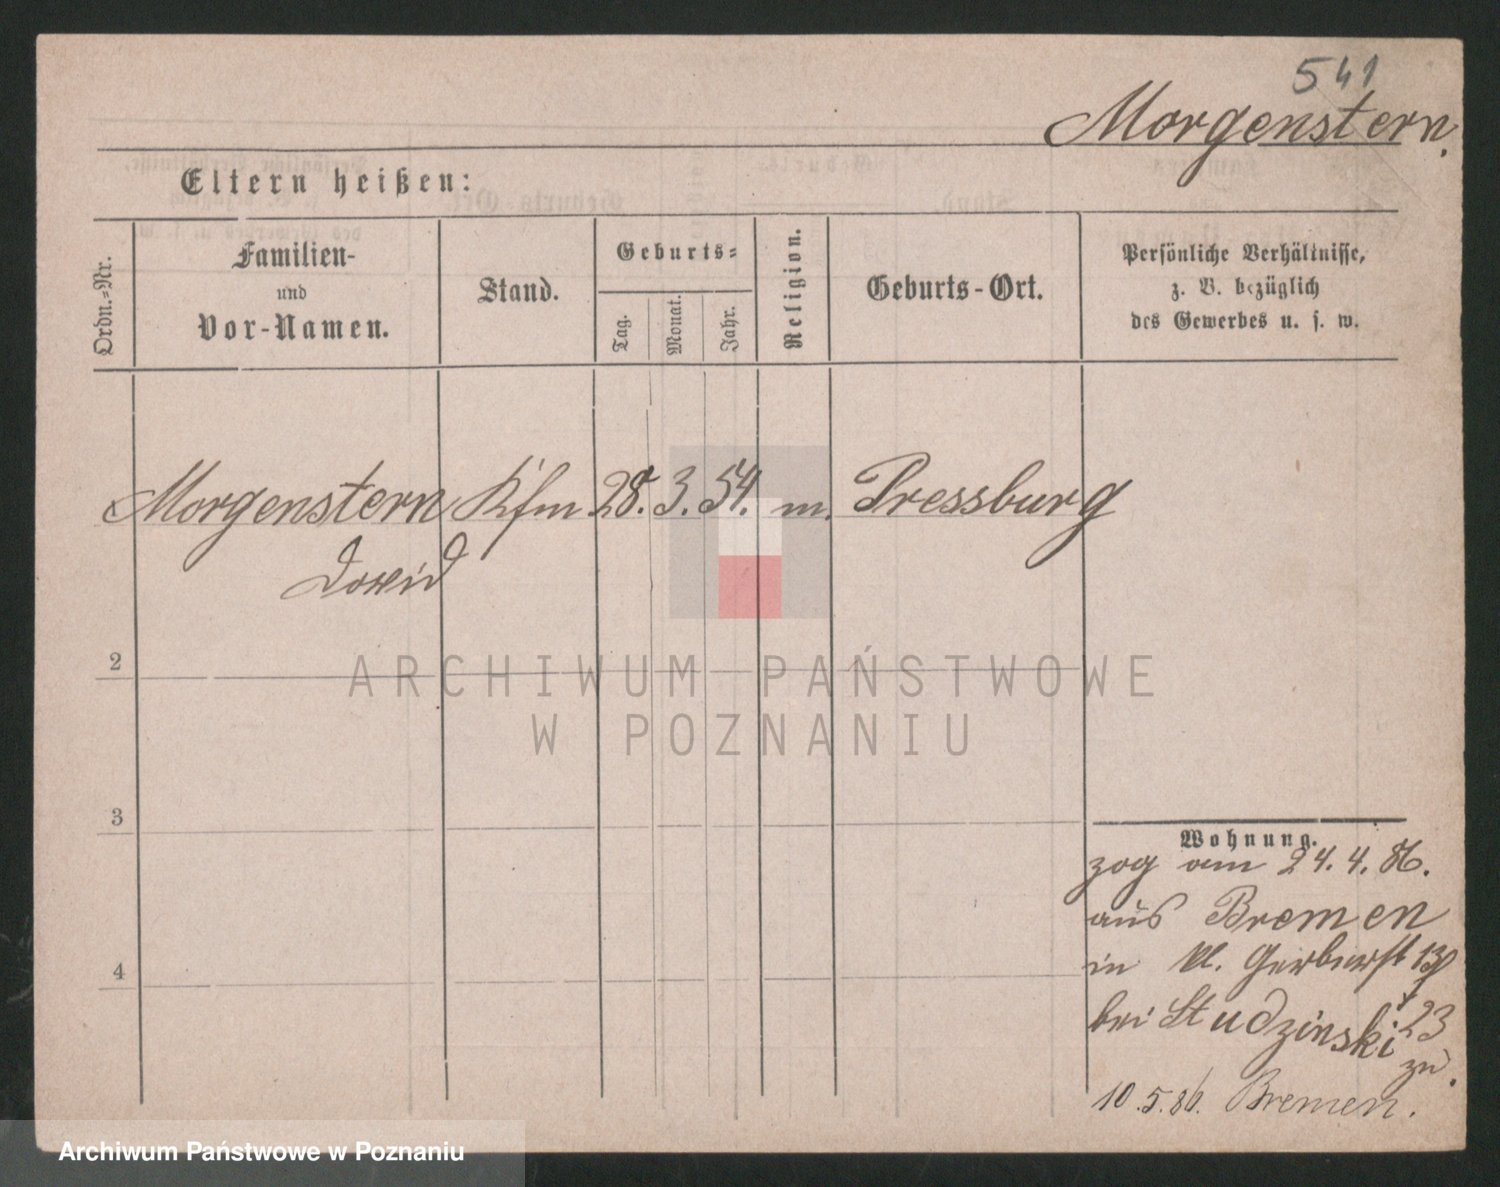 541
Morgenstern.
Eltern heißen:
Ordn.-Nr.
Familien-
und
Vor-Namen.
Stand.
Geburts-
Tag.
Monat.
Jahr.
Religion.
Geburts-Ort.
Persönliche Verhältnisse,
z. B. bezüglich
des Gewerbes u. s. w.
Morgenstern Kfm 28. 3. 54. m. Pressburg
Dawid
2
ARCHIWUM PAŃSTWOWE
W POZNANIU
3
Wohnung.
zog am 24.4.86.
aus Bremen
4
in kl. Gerberst 13
bei Studzinski 23
zu.
10.5.86. Bremen.
Archiwum Państwowe w Poznaniu